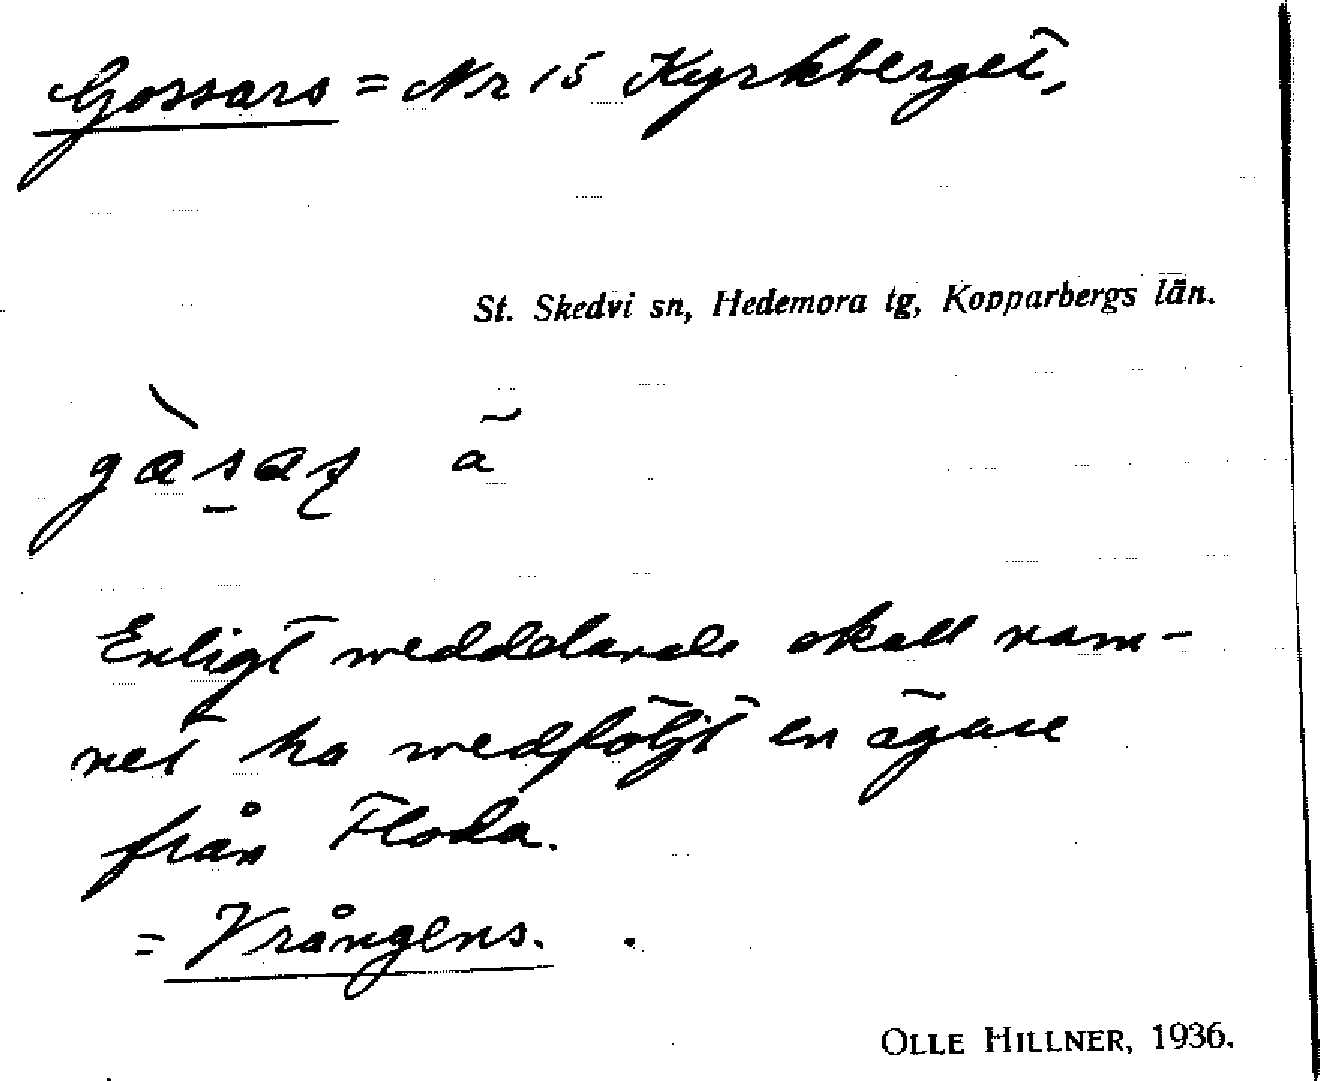 Gossars = Nr 15 Kyrkberget,
St. Skedvi sn, Hedemora tg, Kopparbergs län.
Enligt meddelande skall nam-
net ha medföljt en ägare
från Floda.
= Vrångens.
OLLE HILLNER, 1936.